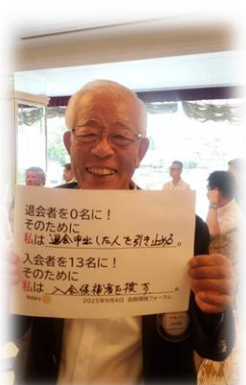 退会者を0名に！
そのために
私は 退会申出した人を引き止める。
入会者を13名に！
そのために
私は 入会候補者を探す 。
Rotary
2025年9月4日 会員増強フォーラム